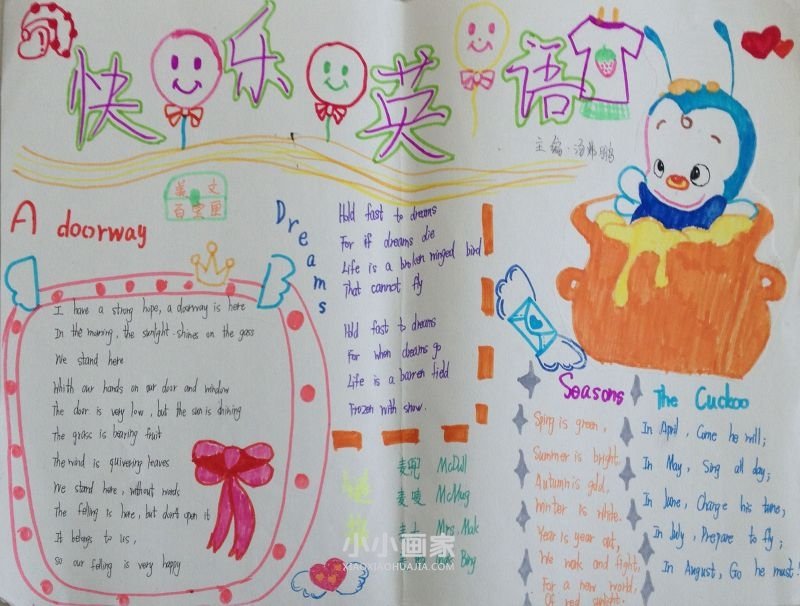 快乐英语
主编:汤弗鹏
英文
百宝匣
A doorway
I have a strong hope, a doorway is here
In the morning, the sunlight shines on the gass
We stand here
Whith our hands on our door and window
The door is very low, but the sun is shining
The grass is bearing fruit
The wind is quivering leaves
We stand here, without words
The felling is here, but don't open it
It belongs to us,
so our felling is very happy
Dreams
Hold fast to dreams
For if dreams die
Life is a broken winged bird
That cannot fly
Hold fast to dreams
For when dreams go
Life is a barren field
Frozen with snow.
麦兜 McDull
麦唛 McMug
麦太 Mrs Mak
Bing
Seasons
Spring is green,
Summer is bright.
Autumn is gold,
Winter is white.
Year is year out,
We work and fight,
For a new world,
Of red sunlight.
The Cuckoo
In April, Come he will;
In May, Sing all day;
In June, Change his tune;
In July, Prepare to fly;
In August, Go he must!
小小画家
XIAOXIAOHUAJIA.COM